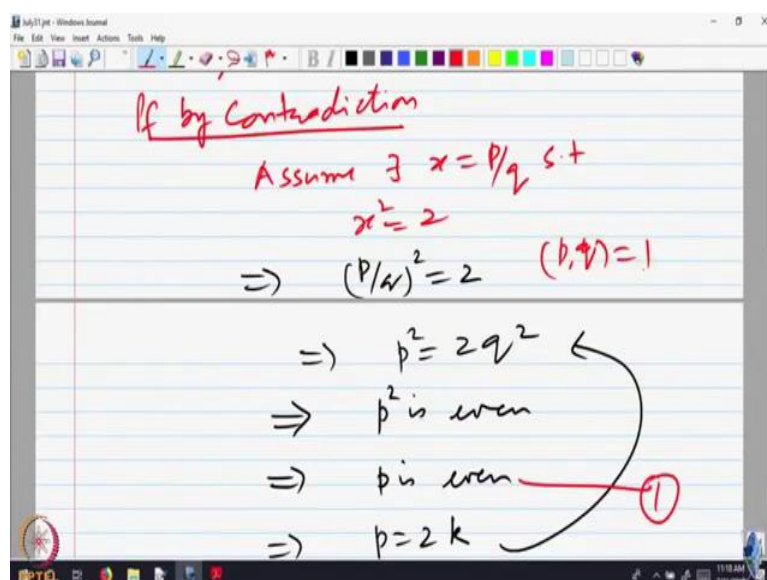 July31.jnt - Windows Journal
File Edit View Insert Actions Tools Help
Pf by Contradiction
Assume ∃ x = P/q s.t
x² = 2
=> (P/q)² = 2 (p,q) = 1
=> p² = 2q²
=> p² is even
=> p is even 1
=> p = 2k
NPTEL
11:18 AM